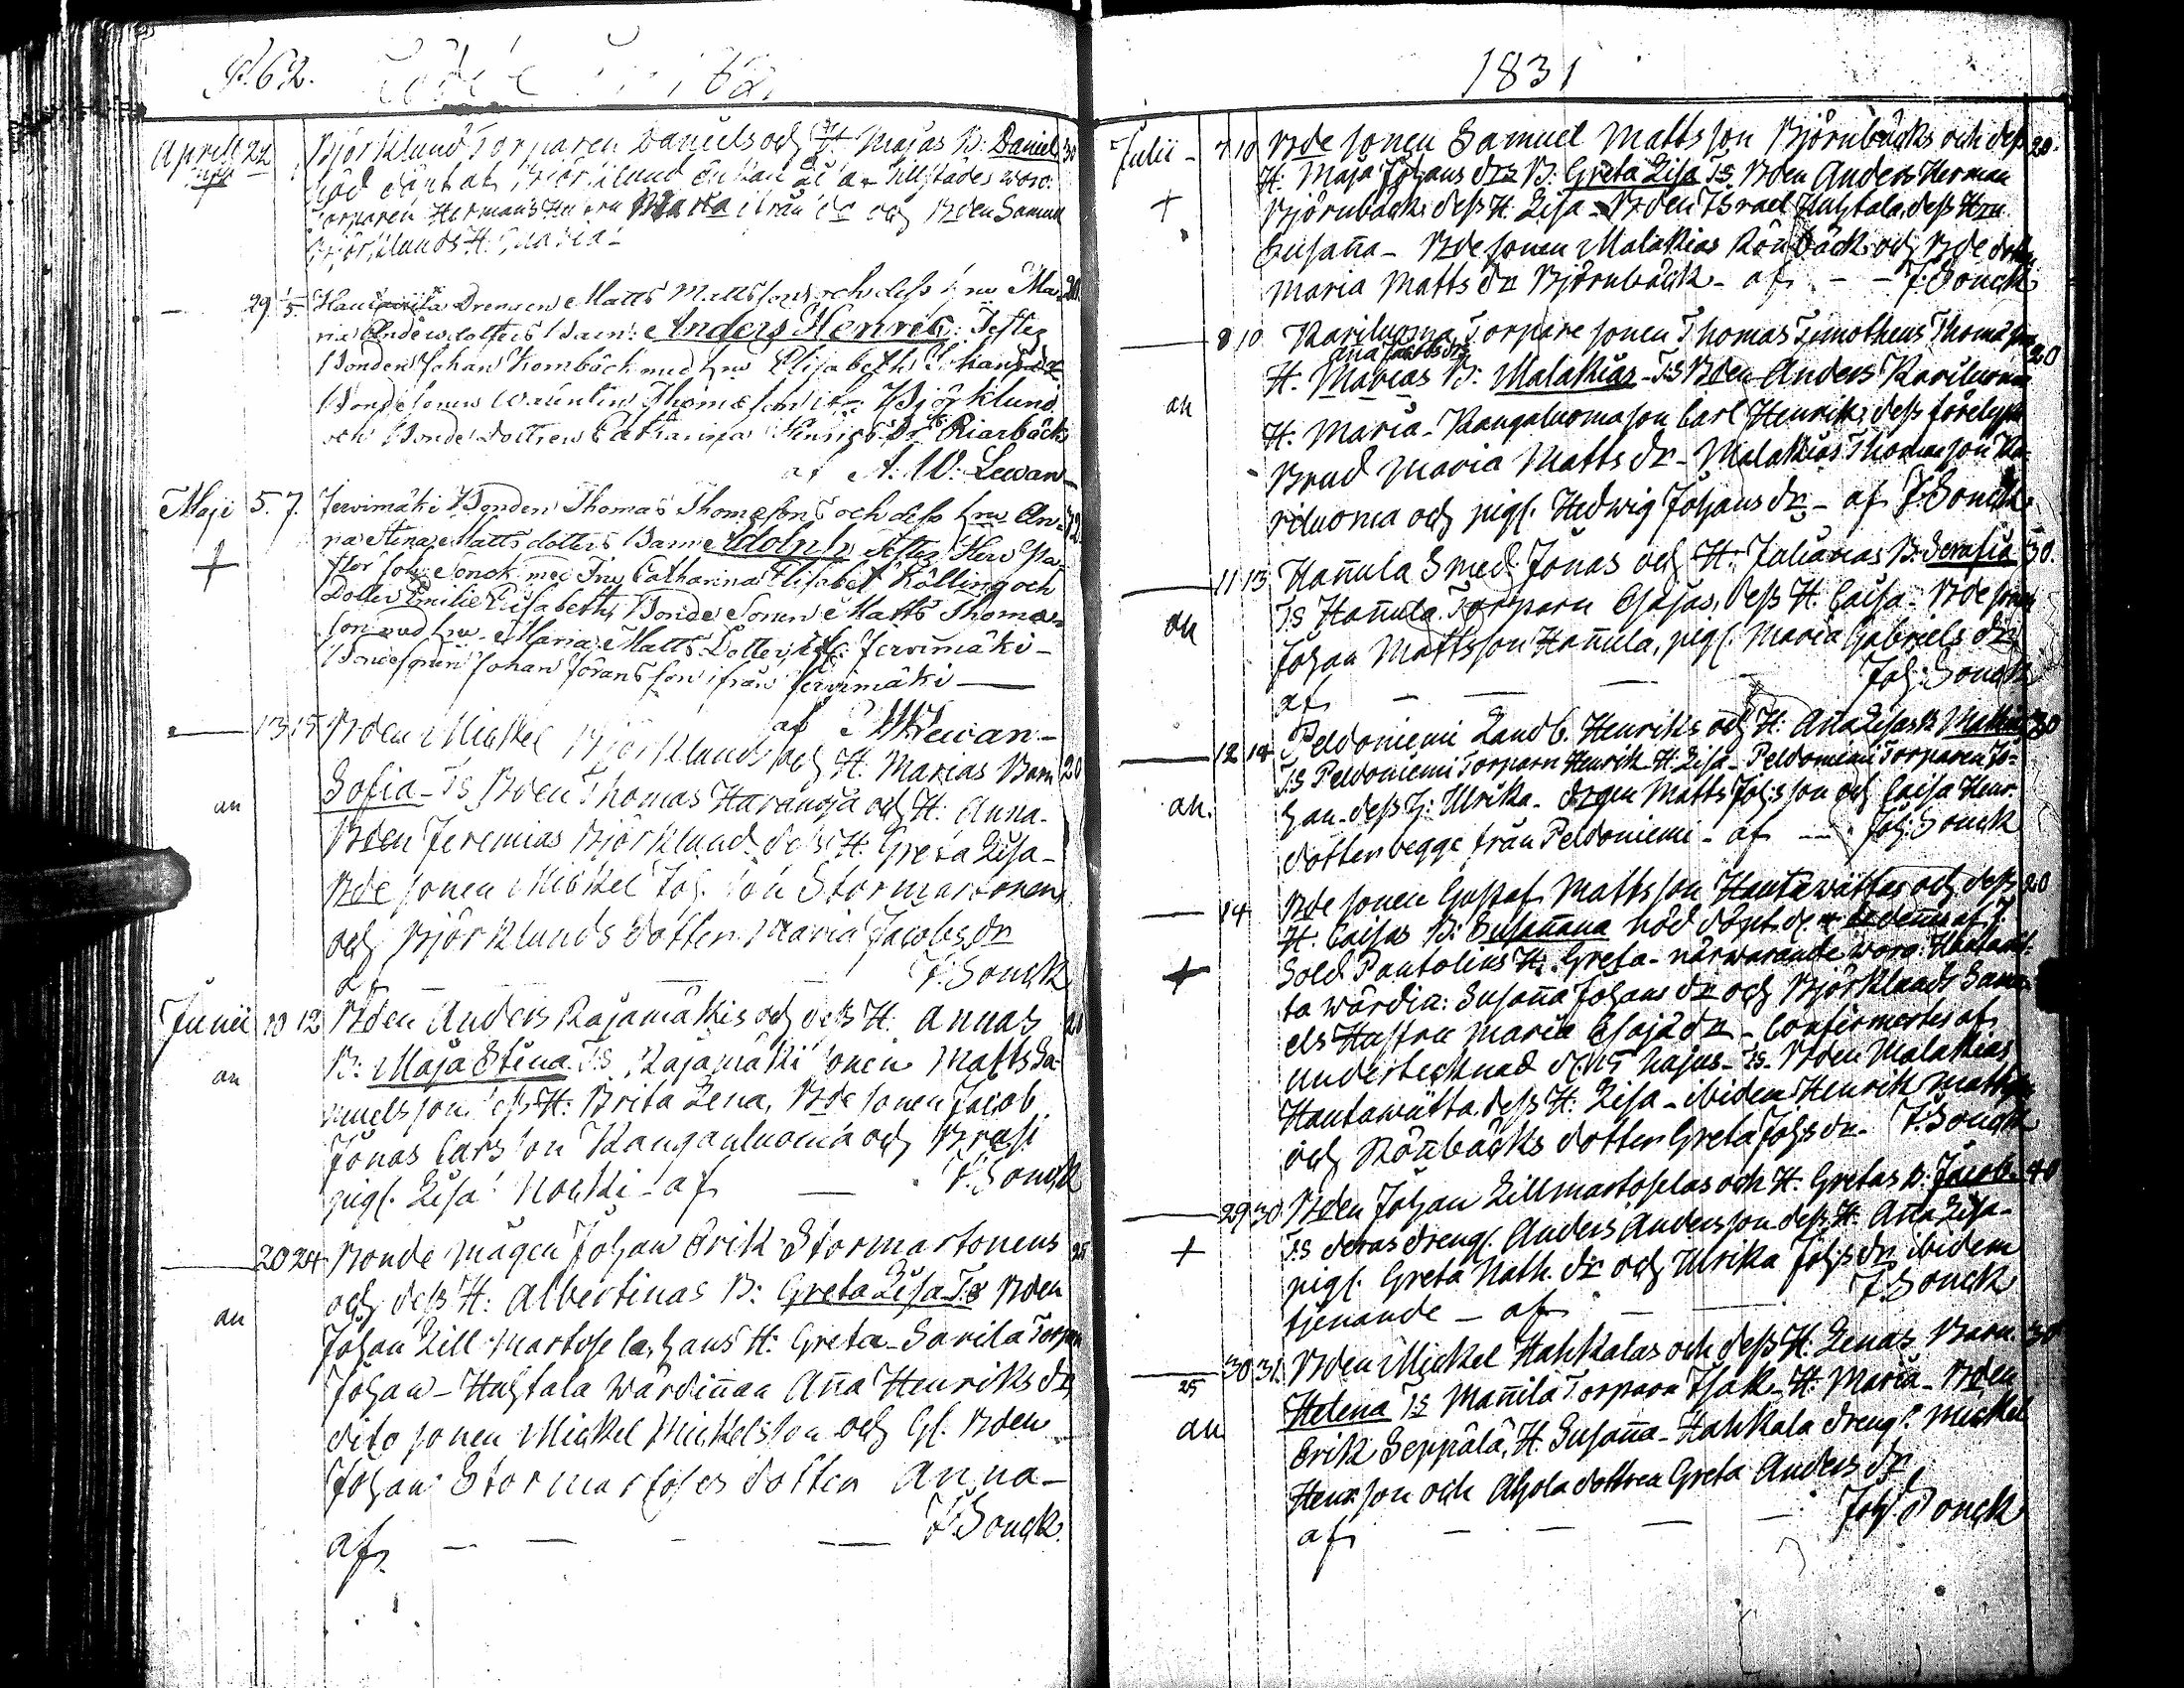 P. 62.
April 22
Björklund Torparen Daniels och H. Majas B: Daniel 30
nöd döpt af Björklund
Torparen Hermans Hustru Maria ifrån och Bden Samuel
Björklunds H. Maria
29 1/5 Drengen Matts Mattssons och dess hru Ma- 20.
ria Andersdotters Barn: Anders Henrik: Testes
Bonden Johan Rombäck med hru Elisabeth Johansdr
Bondesonen Thomæson Björklund
och Bonde dottren Catharina Henrics Dr Riarbäck
af A. W. Lewan
Maji 5. 7. Jervimäki Bonden Thomas Thomæsons och dess hru An- 32.
na Stina Mattsdotters Barn Adolph Testes Herr Pa-
stor Joh: Sonck med Fru Catharina Elisabet Kölling och
Dotter Emilie Elisabeth, Bonde Sonen Matts Thomæ-
son med hru Maria Matts Dotter ifr. Jervimäki –
Bondesonen Johan Jöransson ifrån Jervimäki —
af Lewan –
13 15 Bden Mickel Björklunds och H. Marias Barn 20
an
Sofia – T.s Bden Thomas Harauoja och H. Anna.
Bden Jeremias Björklund dess H. Greta Lisa –
Bde sonen Mickel Joh. son Stormartonen
och Björklunds dotter Maria Jacobs dr
af — — — J. Sonck
Junii 10 12 Bden Anders Rajamäkis och dess H. Annas 20
an
B: Maja Stina T.s Rajamäki sonen Matts Sa-
muelsson dess H: Brita Lena, Bde sonen Jacob
Jonas Carsson Kangasluoma och Brasi
pigl. Lisa Norki – af — J. Sonck
20 24 Bonde mågen Johan Erik Stormartonens 25
an
och dess H: Albertinas B: Greta Lisa T.s Bden
Johan Lillmartosela, hans H: Greta – Savila Torpar
Johan – Huhtala wärdinnan Anna Henriks dr
dito sonen Mickel Mickelsson och Gl. Bden
Johan Stormartoses dotter Anna –
af — — — — J. Sonck.
1831
Julii – 7 10 Bde sonen Samuel Mattsson Björnbäcks och dess 20.
H. Maja Johans drs B: Greta Lisa T.s Bden Anders Herman
+
Björnback dess H. Lisa – Bden Israel Huhtala dess Hru
Susanna – Bde sonen Malakias Rönbäck och Bde dottren
Maria Matts dr Björnbäck – af – – J. Sonck
8 10 Kariluoma Torpare sonen Thomas Timotheus Thomæsons 20
Ana Jacobs drs
H. Marias B: Malakias – T.s Bden Anders Kariluoma
an
H. Maria – Kangaluoma son Carl Henrik dess förelofvade
Brud Maria Matts dr – Malakias Thomasson Ka-
riluoma och pigl. Hedwig Johans dr – af J. Sonck
11 13 Hannula Smed. Jonas och H: Julianas B: Serafia 30.
an
T.s Hannula Torparn Esajas, dess H. Caisa – Bde sonen
Johan Mattsson Hannula, pigl. Maria Gabriels dr
af – — — – Joh: Sonck
12 18 Peldoniemi Landb. Henriks och H: Anna Lisas B Mathias 30
T.s Peldoniemi Torparn Henrik H: Lisa – Peldoniemi Torparen Jo-
an.
han – dess H: Ulrika – drgen Matts Johsson och Caisa Henr.
dotter begge från Peldoniemi – af — Joh: Sonck
14 Bde sonen Gustaf Mattsson Hautawättas och dess 20
H. Caisas B: Susannana nöd döpt
+
Sold. Pantolius H: Greta – närwarande woro: Hautawät-
ta wärdin: Susanna Johans dr och Björklunds Samu-
els Hustru Maria Esajæ dr – Confirmertes af
undertecknad d. 15 hujus – T.s Bden Malakias
Hautawätta dess H. Lisa – ibidem Henrik Mattsson
och Rönbäcks dotter Greta Johs dr – J. Sonck
29 30 Bden Johan Lillmartoselas och H. Gretas B: Jacob 40
+
T.s deras drengl. Anders Andersson dess H. Anna Lisa –
pigl. Greta Math. dr och Ulrika Johs dr ibidem
tjenande – af – — J. Sonck
30 31. Bden Mickel Hahkalas och dess H. Lenas Barn 30
25
Helena T.s Mannila Torparn Isak – H. Maria – Bden
an
Erik Seppälä, H. Susanna – Hahkala drengl. Mickel
Henrson och Ahola dottren Greta Anders dr
af — — — — Joh. Sonck